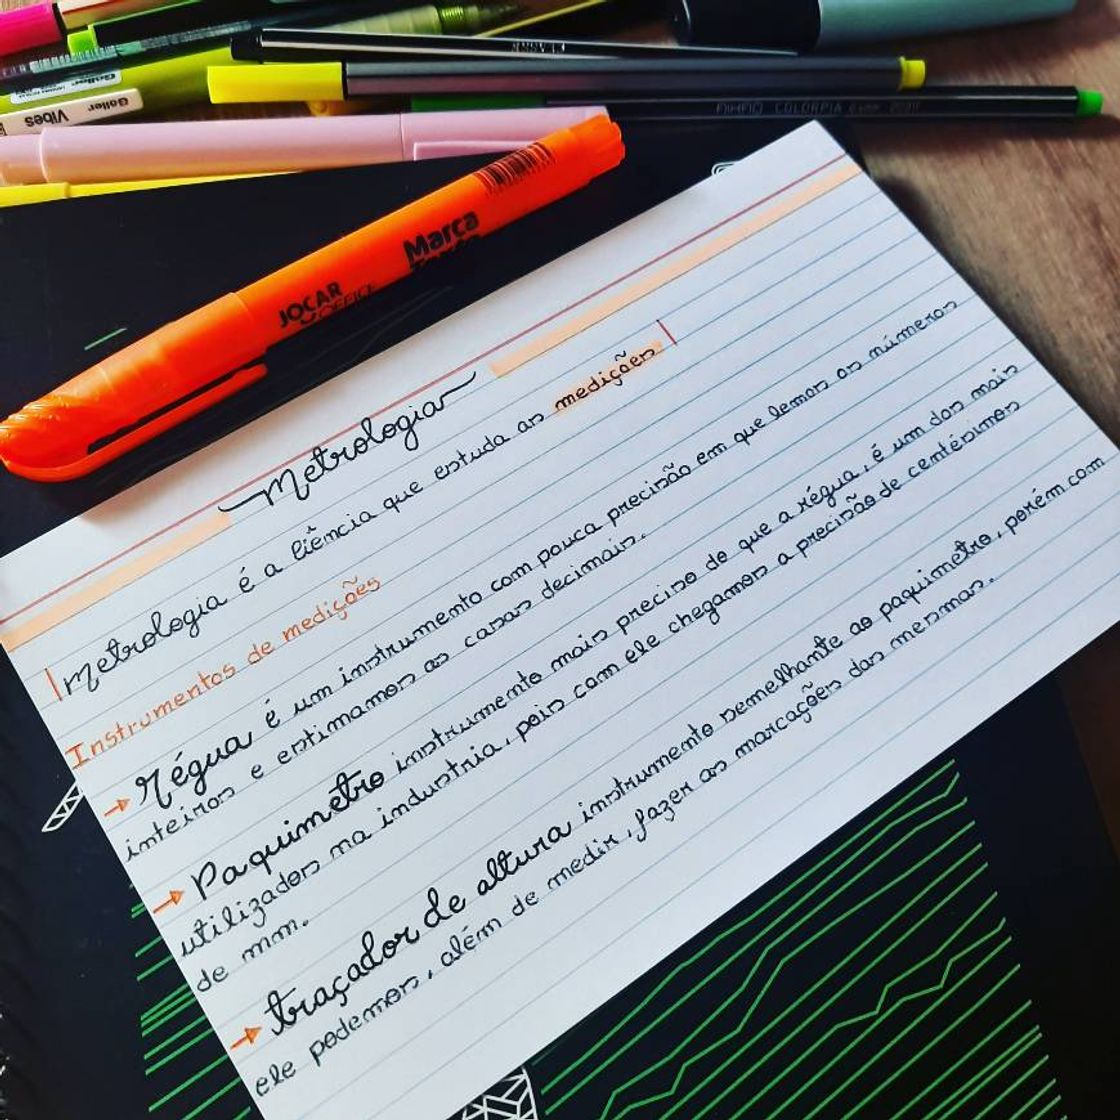 Goller
Goller
Vibes
JOCAR
OFFICE
Marca
Metrologia
Metrologia é a ciência que estuda as medições.
Instrumentos de medições
→ Régua é um instrumento com pouca precisão em que lemos os números
inteiros e estimamos as casas decimais.
→ Paquimetro instrumento mais preciso do que a régua, é um dos mais
utilizados na industria, pois com ele chegamos a precisão de centésimos
de mm.
→ traçador de altura instrumento semelhante ao paquimetro, porém com
ele podemos, além de medir, fazer as marcações das mesmas.